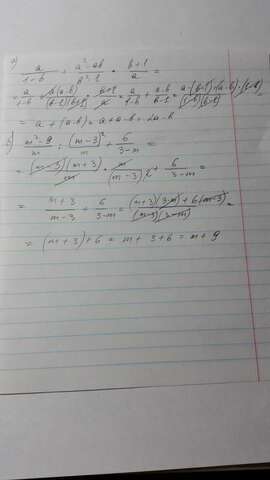 а)
a/(1-b) + (a²-ab)/(b²-1) · (b+1)/a =
= a/(1-b) + a(a-b)/((b-1)(b+1)) · (b+1)/a = a/(1-b) + (a-b)/(b-1) = (a·(b-1)+(a-b)·(1-b))/((1-b)(b-1)) =
= a + (a-b) = a+a-b =
б) (m²-9)/m : (m-3)²/m + 6/(3-m) =
= (m-3)(m+3)/m · m/(m-3)² + 6/(3-m) =
= (m+3)/(m-3) + 6/(3-m) = ((m+3)(3-m)+6(m-3))/((m-3)(3-m)) =
= (m+3)+6 = m+3+6 = m+9